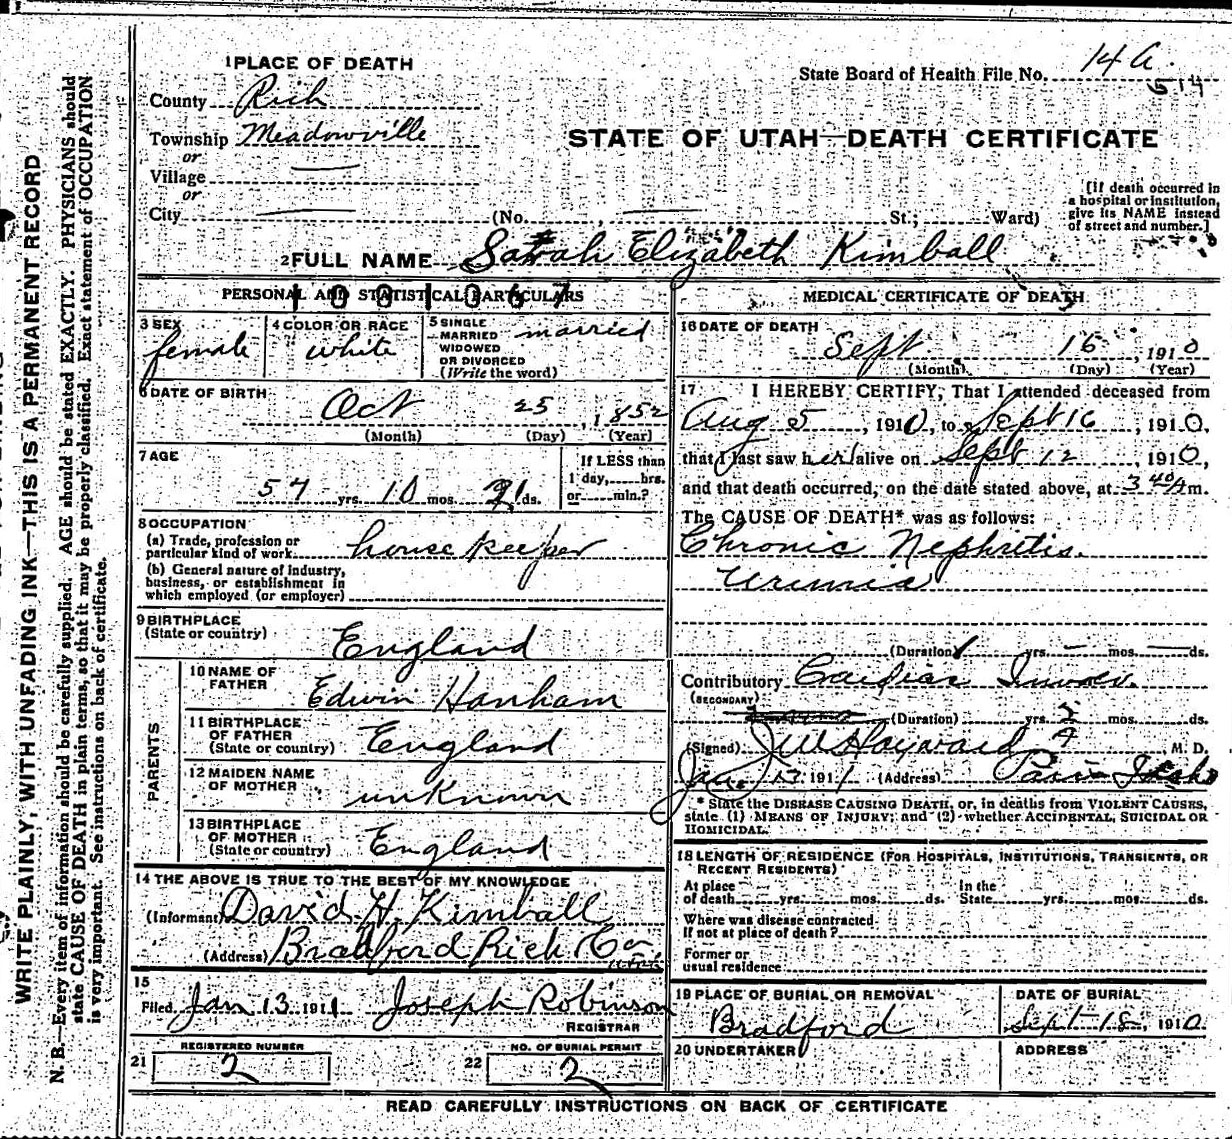 1 PLACE OF DEATH
County Rich
Township Meadowville
or
Village
or
City (No. , St.; Ward)
State Board of Health File No. 14 a.
514
STATE OF UTAH—DEATH CERTIFICATE
[If death occurred in a hospital or institution, give its NAME instead of street and number.]
2 FULL NAME Sarah Elizabeth Kimball
PERSONAL AND STATISTICAL PARTICULARS
3 SEX
female
4 COLOR OR RACE
white
5 SINGLE
MARRIED
WIDOWED
OR DIVORCED
(Write the word)
married
6 DATE OF BIRTH
Oct 25, 1852
(Month) (Day) (Year)
7 AGE
57 yrs. 10 mos. 21 ds.
If LESS than
1 day, hrs.
or min.?
8 OCCUPATION
(a) Trade, profession or
particular kind of work house keeper
(b) General nature of industry,
business, or establishment in
which employed (or employer)
9 BIRTHPLACE
(State or country) England
PARENTS
10 NAME OF
FATHER Edwin Hanham
11 BIRTHPLACE
OF FATHER
(State or country) England
12 MAIDEN NAME
OF MOTHER unknown
13 BIRTHPLACE
OF MOTHER
(State or country) England
14 THE ABOVE IS TRUE TO THE BEST OF MY KNOWLEDGE
(Informant) David H. Kimball
(Address) Bradford Rich Co
15
Filed Jan 13 1911 Joseph Robinson
REGISTRAR
21 REGISTERED NUMBER
2
22 NO. OF BURIAL PERMIT
2
MEDICAL CERTIFICATE OF DEATH
16 DATE OF DEATH
Sept 16, 1910
(Month) (Day) (Year)
17 I HEREBY CERTIFY, That I attended deceased from
Aug 5, 1910, to Sept 16, 1910,
that I last saw her alive on Sept 12, 1910,
and that death occurred, on the date stated above, at 3 40 A m.
The CAUSE OF DEATH* was as follows:
Chronic Nephritis.
Uremia
(Duration) 1 yrs. — mos. — ds.
Contributory
(SECONDARY)
(Duration) yrs. 2 mos. ds.
(Signed) J W Hayward, M. D.
Jan. 13 1911 (Address) Paris Idaho
* State the DISEASE CAUSING DEATH, or, in deaths from VIOLENT CAUSES,
state (1) MEANS OF INJURY; and (2) whether ACCIDENTAL, SUICIDAL OR
HOMICIDAL.
18 LENGTH OF RESIDENCE (FOR HOSPITALS, INSTITUTIONS, TRANSIENTS, OR
RECENT RESIDENTS)
At place
of death yrs. mos. ds.
In the
State yrs. mos. ds.
Where was disease contracted
If not at place of death?
Former or
usual residence
19 PLACE OF BURIAL OR REMOVAL
Bradford
DATE OF BURIAL
Sept 18, 1910
20 UNDERTAKER
ADDRESS
READ CAREFULLY INSTRUCTIONS ON BACK OF CERTIFICATE
WRITE PLAINLY, WITH UNFADING INK—THIS IS A PERMANENT RECORD
N. B.—Every item of information should be carefully supplied. AGE should be stated EXACTLY. PHYSICIANS should
state CAUSE OF DEATH in plain terms, so that it may be properly classified. Exact statement of OCCUPATION
is very important. See instructions on back of certificate.